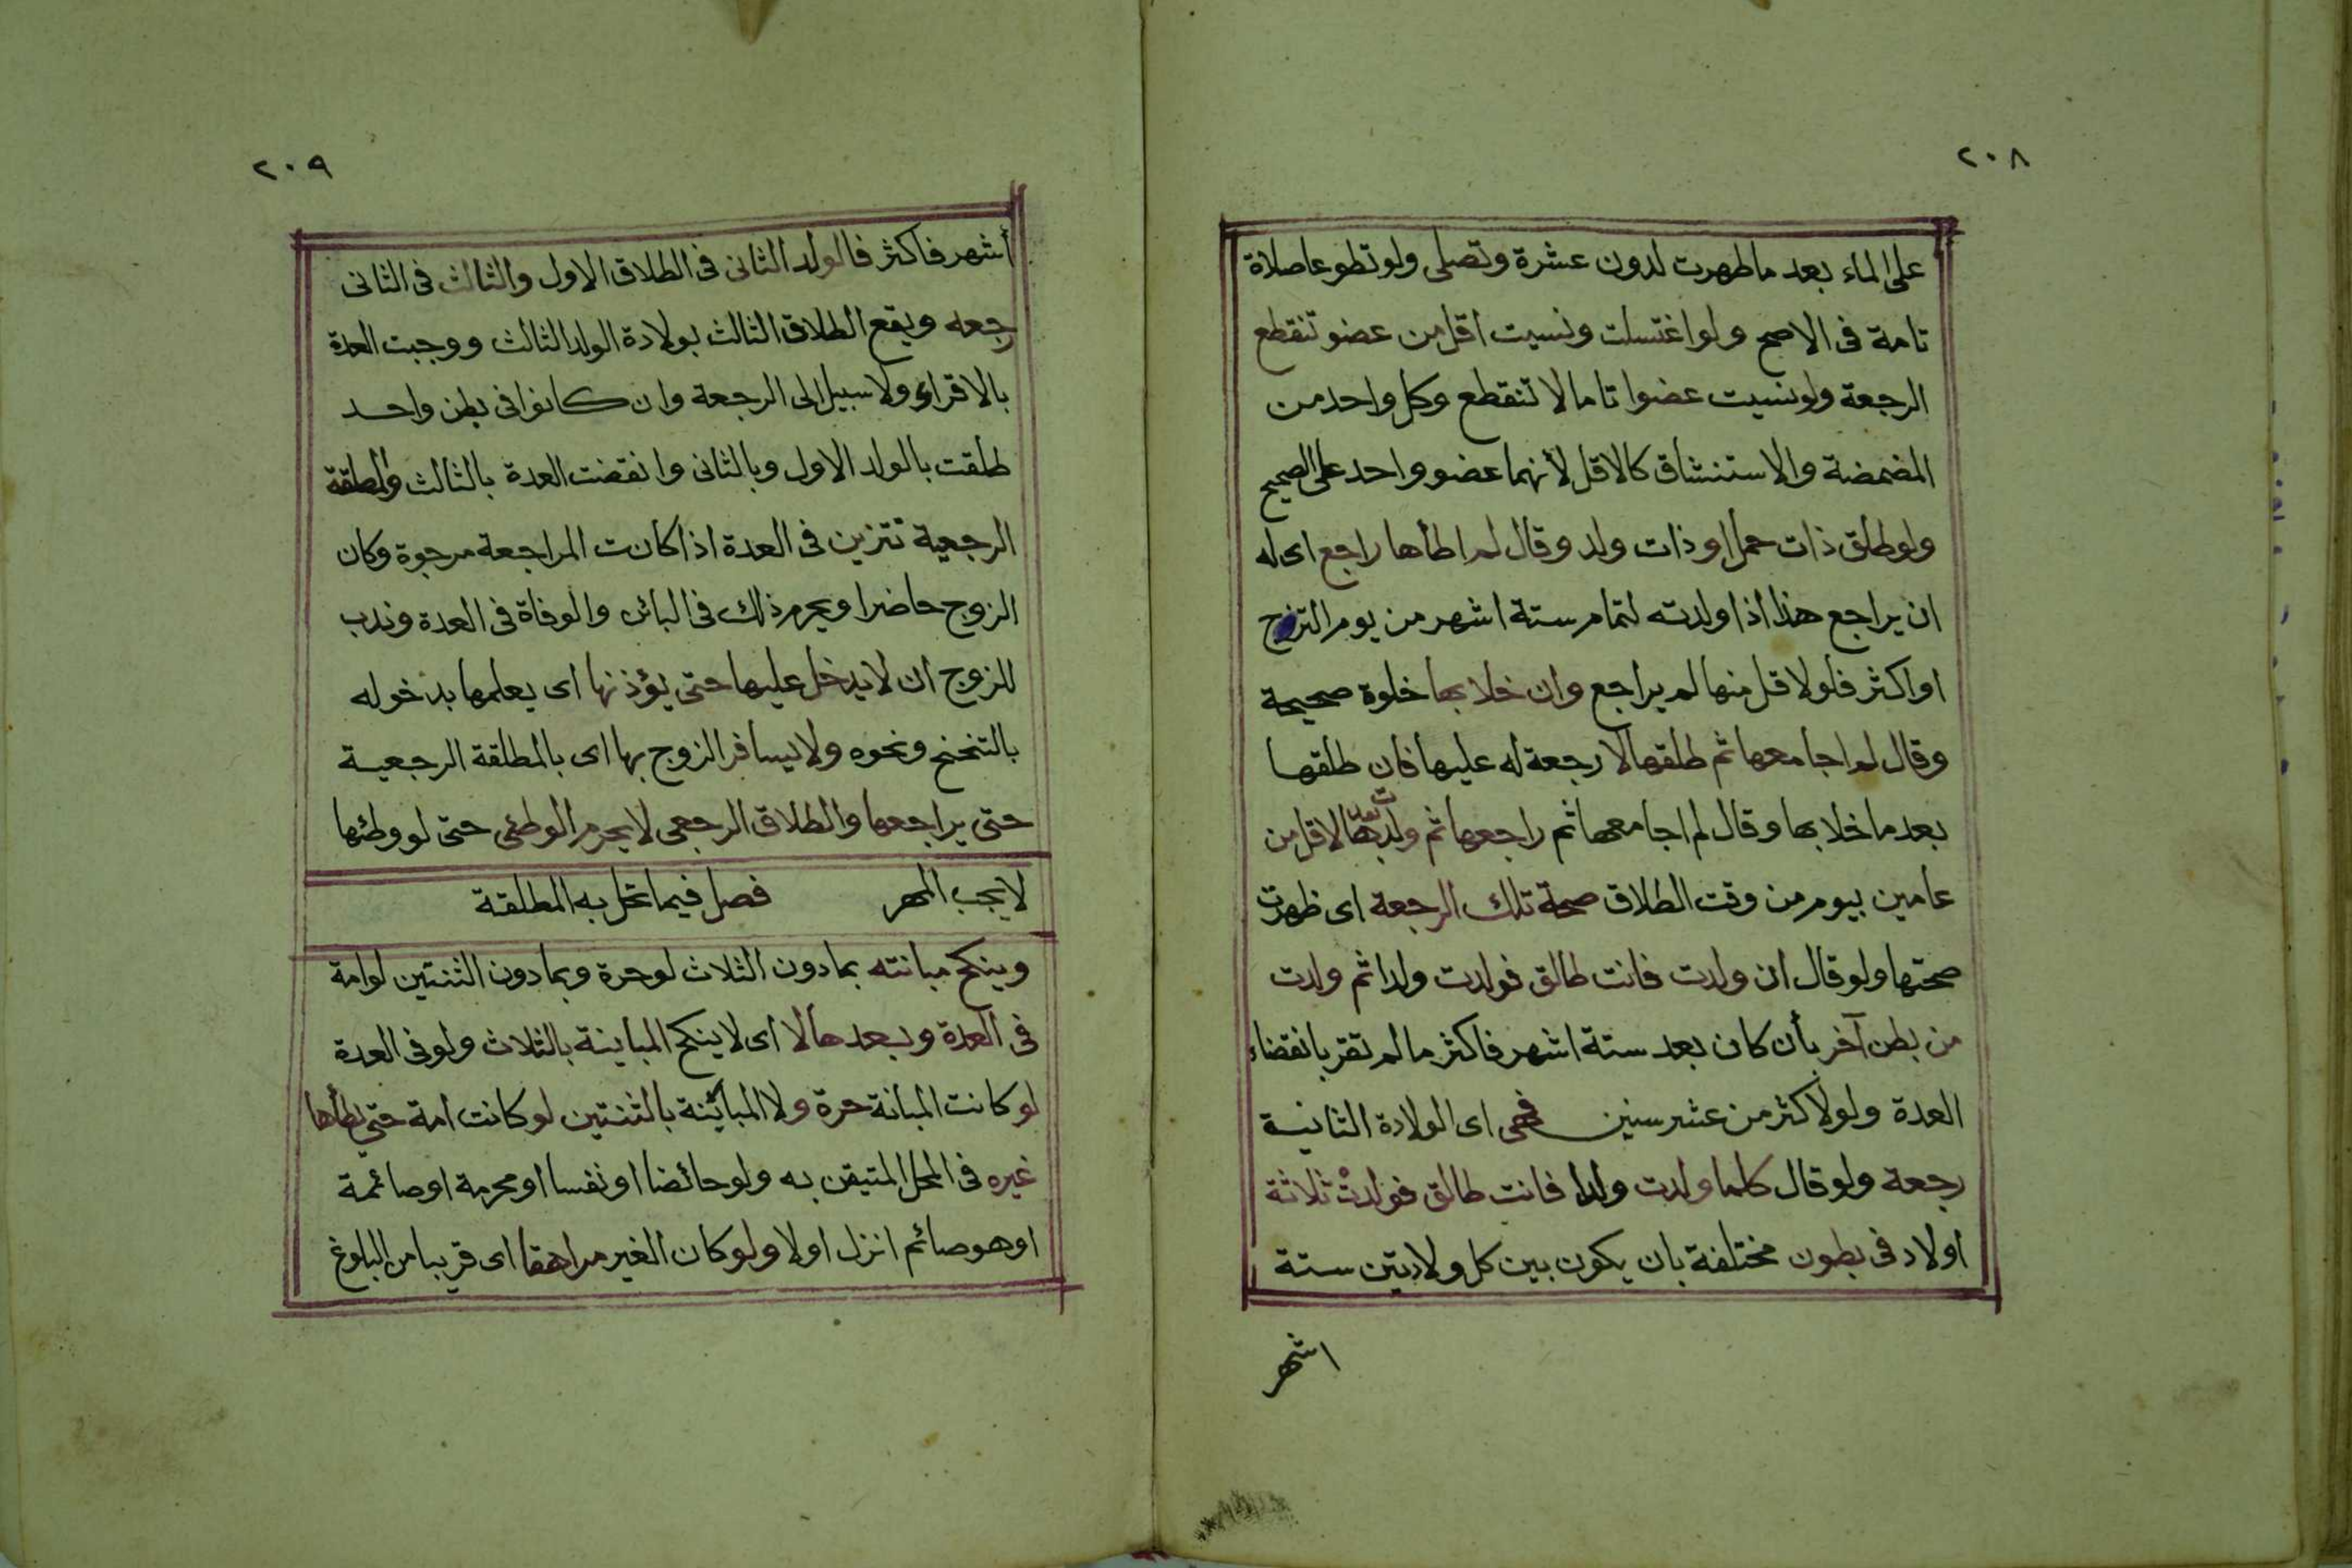 ٢٠٨
على الماء بعد ما طهرت لدون عشرة وتصلى ولو تطوعا صلاة
تامة فى الاصح ولو اغتسلت ونسيت اقل من عضو تنقطع
الرجعة ولو نسيت عضوا تاما لا تنقطع وكل واحد من
المضمضة والاستنشاق كالاقل لأنهما عضو واحد على الصحيح
ولو طلق ذات حمل او ذات ولد وقال لم اطأها راجع اى له
ان يراجع هذا اذا ولدته لتمام ستة اشهر من يوم التزوج
او اكثر فلو لاقل منها لم يراجع وان خلا بها خلوة صحيحة
وقال لم اجامعها ثم طلقها لا رجعة له عليها فان طلقها
بعد ما خلا بها وقال لم اجامعها ثم راجعها ثم ولدت بعدها لاقل من
عامين بيوم من وقت الطلاق صحة تلك الرجعة اى ظهرت
صحتها ولو قال ان ولدت فانت طالق فولدت ولدا ثم ولدت
من بطن آخر بأن كان بعد ستة اشهر فاكثر ما لم تقر بانقضاء
العدة ولو لاكثر من عشر سنين فهى اى الولادة الثانية
رجعة ولو قال كلما ولدت ولدا فانت طالق فولدت ثلاثة
اولاد فى بطون مختلفة بان يكون بين كل ولادتين ستة
اشهر
٢٠٩
أشهر فاكثر فالولد الثانى فى الطلاق الاول والثالث فى الثانى
رجعه ويقع الطلاق الثالث بولادة الولد الثالث ووجبت العدة
بالاقراء ولا سبيل الى الرجعة وان كانوا فى بطن واحد
طلقت بالولد الاول وبالثانى وانقضت العدة بالثالث والمطلقة
الرجعية تتزين فى العدة اذا كانت المراجعة مرجوة وكان
الزوج حاضرا ويحرم ذلك فى البائن والوفاة فى العدة وندب
للزوج ان لا يدخل عليها حتى يؤذنها اى يعلمها بدخوله
بالتنحنح ونحوه ولا يسافر الزوج بها اى بالمطلقة الرجعية
حتى يراجعها والطلاق الرجعى لا يحرم الوطئى حتى لو وطئها
لا يجب المهر فصل فيما تحل به المطلقة
وينكح مبانته بما دون الثلاث لو حرة وبما دون الثنتين لو امة
فى العدة وبعدها لا اى لا ينكح المباينة بالثلاث ولو فى العدة
لو كانت المبانة حرة ولا المبائنة بالثنتين لو كانت امة حتى يطأها
غيره فى المحل المتيقن به ولو حائضا او نفسا او محرمة او صائمة
او هو صائم انزل او لا ولو كان الغير مراهقا اى قريبا من البلوغ